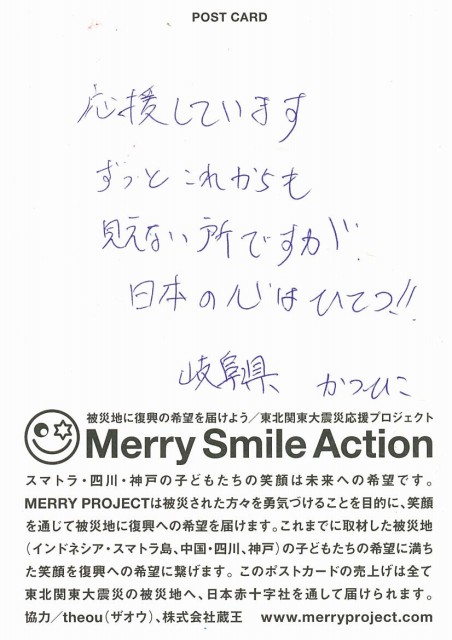 POST CARD
応援しています
ずっとこれからも
見えない所ですが
日本の心はひてつ!!
岐阜県 かつひこ
被災地に復興の希望を届けよう／東北関東大震災応援プロジェクト
Merry Smile Action
スマトラ・四川・神戸の子どもたちの笑顔は未来への希望です。
MERRY PROJECTは被災された方々を勇気づけることを目的に、笑顔
を通じて被災地に復興への希望を届けます。これまでに取材した被災地
（インドネシア・スマトラ島、中国・四川、神戸）の子どもたちの希望に満ち
た笑顔を復興への希望に繋げます。このポストカードの売上げは全て
東北関東大震災の被災地へ、日本赤十字社を通して届けられます。
協力／theou（ザオウ）、株式会社蔵王 www.merryproject.com